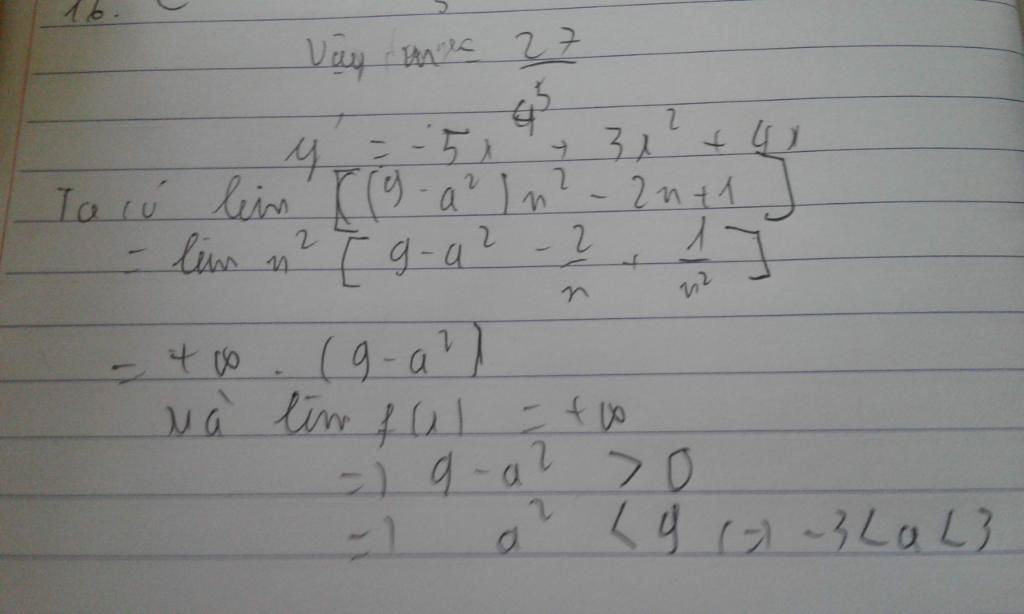 16.
Vậy 27/4⁵
y' = -5x⁴ + 3x² + 4x
Ta có lim [(9 - a²)n² - 2n + 1]
= lim n² [9 - a² - 2/n + 1/n²]
= +∞ . (9 - a²)
Mà lim f(x) = +∞
=> 9 - a² > 0
=> a² < 9 (=) -3 < a < 3